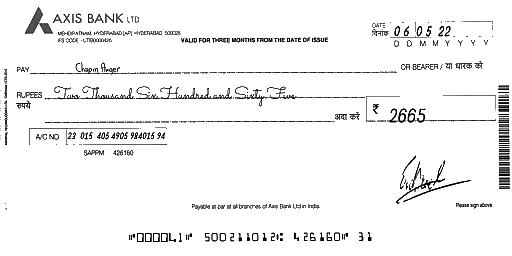 AXIS BANK LTD
MEHDIPATNAM, HYDERABAD [AP] HYDERABAD 500028
IFS CODE - UTIB0000426
VALID FOR THREE MONTHS FROM THE DATE OF ISSUE
DATE
दिनांक 06 05 22
D D M M Y Y Y Y
PAY Chapin Anger OR BEARER / या धारक को
RUPEES Two Thousand Six Hundred and Sixty Five
रुपये अदा करें ₹ 2665
A/C NO 23 015 405 4905 984015 94
SAPPM 426160
Payable at par at all branches of Axis Bank Ltd in India.
Please sign above
⑈000041⑈ 500211012⑆ 426160⑈ 31